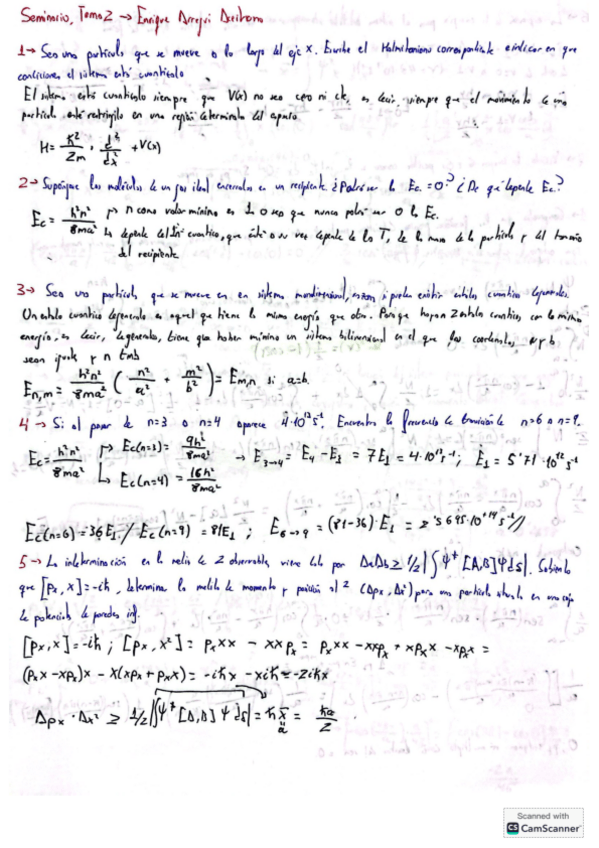 Seminario, Tema 2 → Enrique Arregi
1→ Sea una partícula que se mueve a lo largo del eje X. Escribe el Hamiltoniano correspondiente e indicar en que
condiciones el sistema está cuantizado
El sistema está cuantizado siempre que V(x) no sea cero ni cte, es decir, siempre que el movimiento de una
partícula esté restringido en una región determinada del espacio.
H = ħ²/2m · d²/dx² + V(x)
2→ Supongase las moléculas de un gas ideal encerradas en un recipiente ¿Podría ser la Ec = 0? ¿De qué depende Ec?
Ec = h²n²/8ma² ↱ n como valor mínimo es 1 o sea que nunca podrá ser 0 la Ec.
↳ depende del nº cuantico, que éste a su vez depende de la T, de la masa de la partícula y del tamaño
del recipiente.
3→ Sea una partícula que se mueve en un sistema monodimensional, pueden existir estados cuanticos degenerados.
Un estado cuantico degenerado es aquel que tiene la misma energía que otro. Para que hayan 2 estados cuanticos con la misma
energía, es decir, degenerados, tiene que haber mínimo un sistema bidimensional en el que las coordenadas, a y b
sean iguales y n tmb
En,m = h²n²/8ma² (n²/a² + m²/b²) = Em,n, si a=b.
4→ Si al pasar de n=3 a n=4 aparece 4·10¹³ s⁻¹. Encuentra la frecuencia de transición de n=6 a n=9.
Ec = h²n²/8ma² → Ec(n=1) = 9h²/8ma² → E3→4 = E4 - E1 = 7E1 = 4·10¹³ s⁻¹; E1 = 5'71·10¹² s⁻¹
↳ Ec(n=4) = 16h²/8ma²
Ec(n=6) = 36E1 / Ec(n=9) = 81E1; E6→9 = (81-36)·E1 = 2'5695·10⁺¹⁴ s⁻¹//
5→ La indeterminación en la medida de 2 observables, viene dada por ΔaΔb ≥ 1/2|∫Ψ⁺[A,B]Ψds|. Sabiendo
que [px, x] = -iħ, determina la medida de momento y posición al ² (Δpx, Δx²) para una partícula situada en una caja
de potencial de paredes inf.
[px, x] = -iħ; [px, x²] = pxxx - xxpx = pxxx - xxpx + xpxx - xpxx =
(pxx - xpx)x - x(xpx + pxx) = -iħx - xiħ = -2iħx
Δpx · Δx² ≥ 1/2|∫Ψ⁺[A,B]Ψds| = ħx̄ = ħa/2
a
Scanned with
CS CamScanner